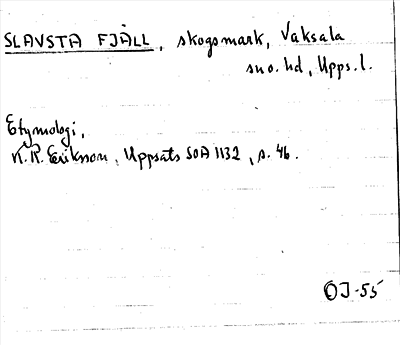 SLAVSTA FJÄLL, skogsmark, Vaksala
sn o. hd, Upps. l.
Etymologi,
K. R. Erikson, Uppsats SOA 1132, s. 46.
OJ-55